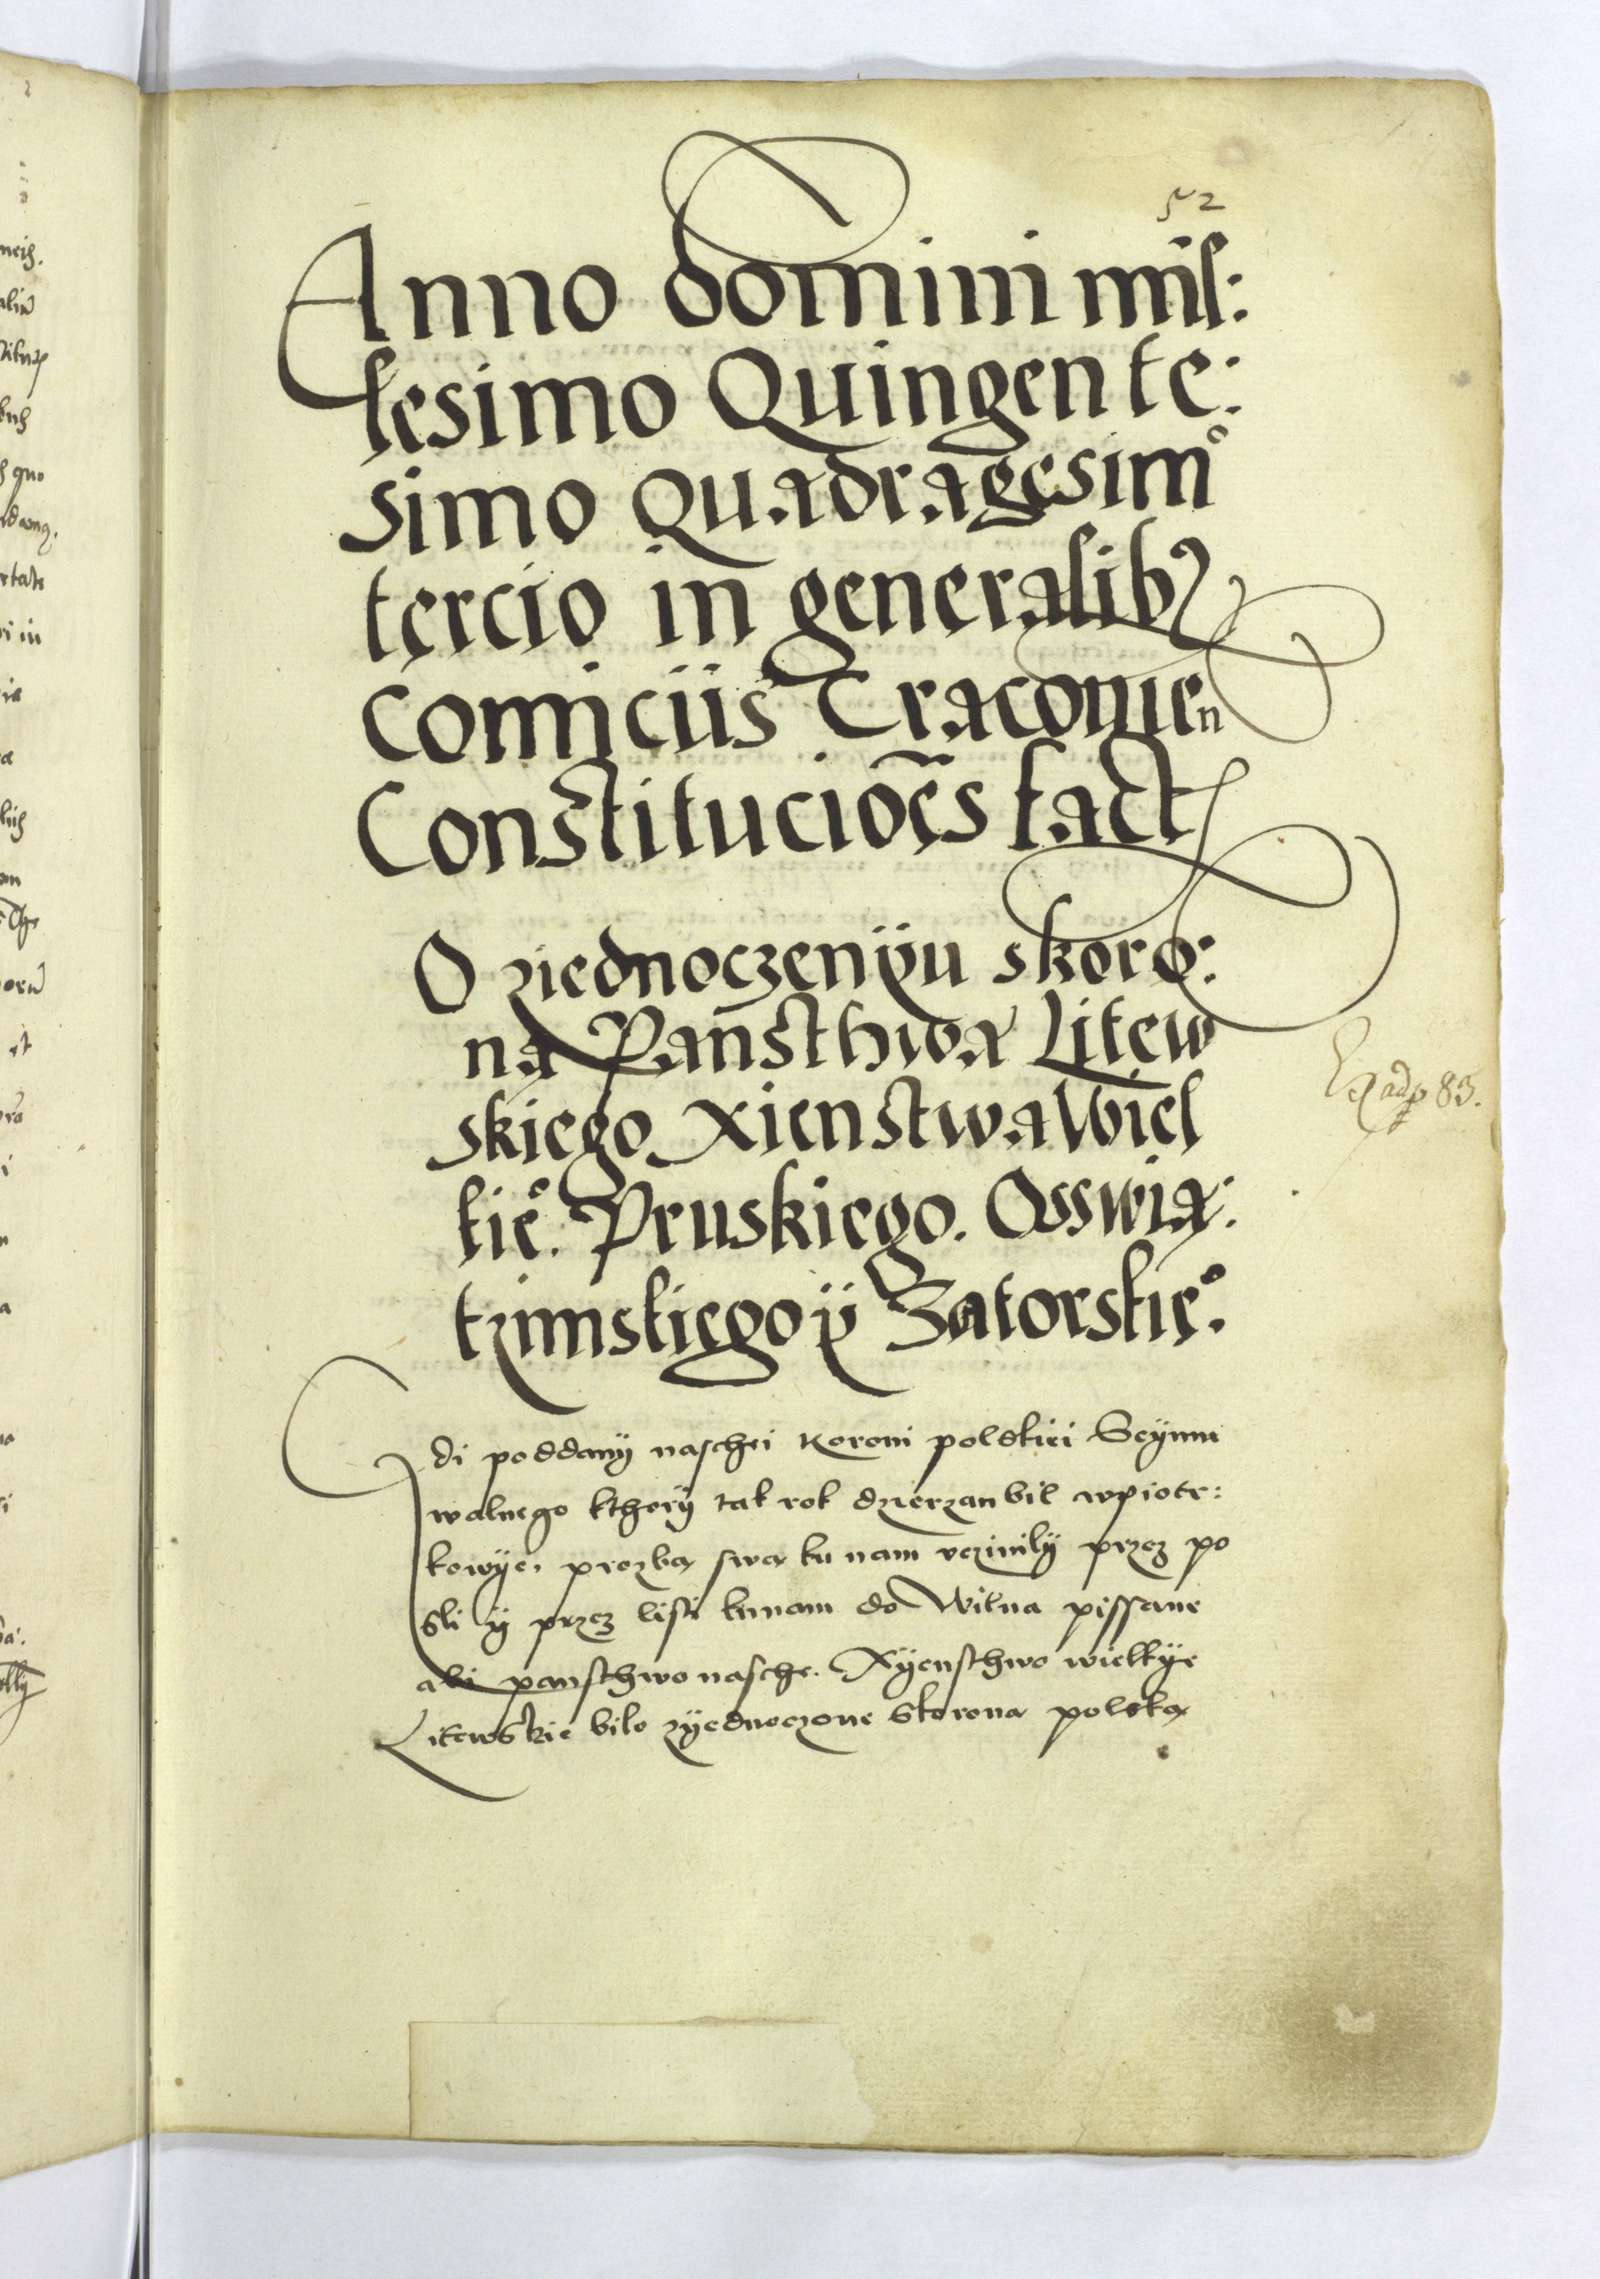 52
Anno domini mil:
lesimo Quingente:
simo Quadragesim°
tercio in generalib9
Comiciis Cracovien
Constitucio͠es fact
O ziednoczenÿu skoro:
ną Pansthwa Litew
skiego Xienstwa Wiel
kie°. Pruskiego. Osswią:
tzimskiego ÿ Zatorskie°.
Gdi poddanÿ naschei Koroni polskiei Seÿmu
walnego kthorÿ tak rok dzierzan bil wpiotr:
kowÿe, prozbą swą ku nam vczinilÿ przez po
sli ÿ przez listi knnam do Wilna pissane
abi pansthwo nasche. Xÿensthwo wielkÿe
Litewskie bilo zÿednoczone skoroną polską
83.